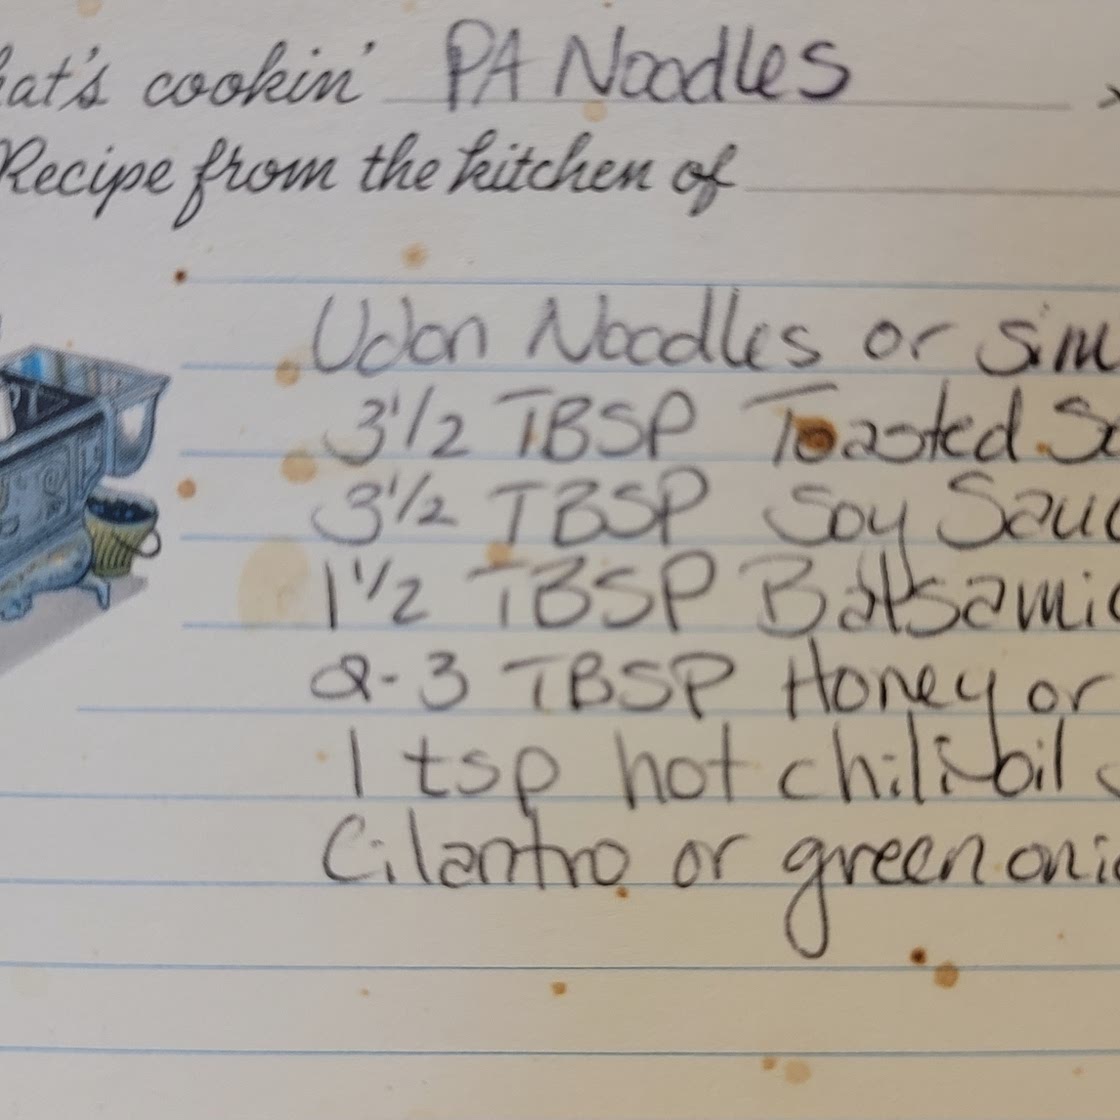 hat's cookin' PA Noodles
Recipe from the kitchen of
Udon Noodles or sim
3 1/2 TBSP Toasted Se
3 1/2 TBSP Soy Sauc
1 1/2 TBSP Balsamic
2-3 TBSP Honey or
1 tsp hot chili oil
Cilantro or green onio